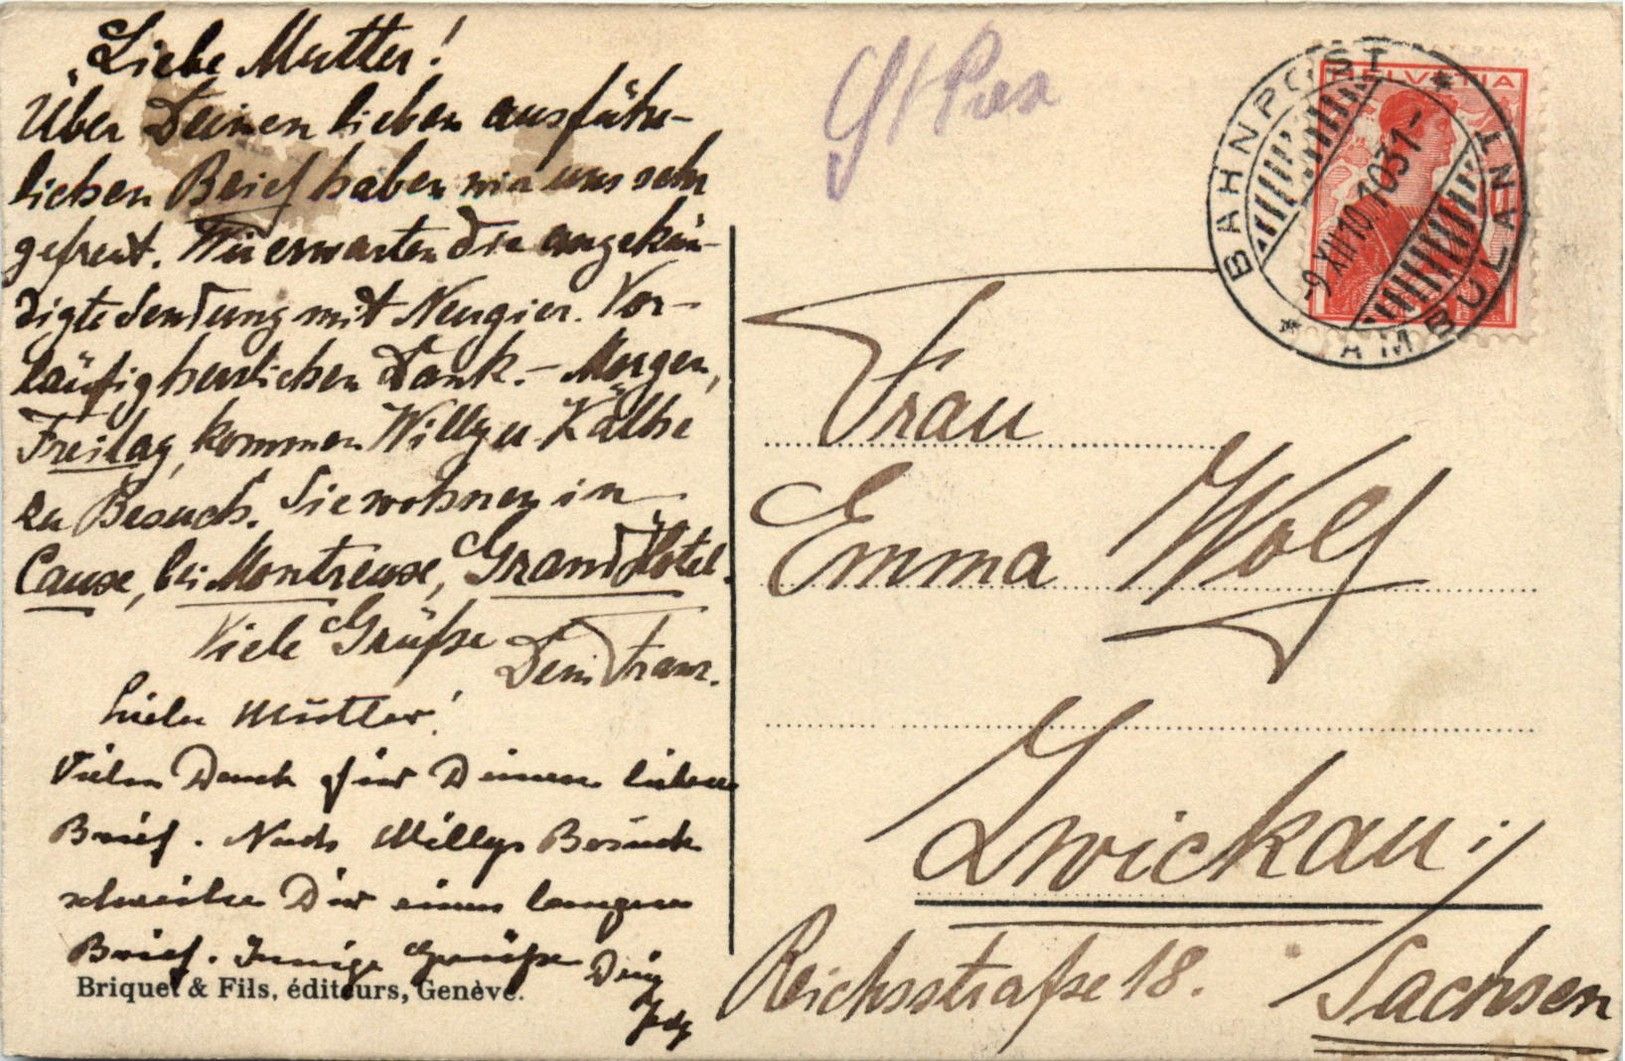 Liebe Mutter!
Über Deinen lieben ausführ-
lichen Brief haben wir uns sehr
gefreut. Wir erwarten die angekün-
digte Sendung mit Neugier. Vor-
läufig herzlichen Dank. – Morgen,
Freitag, kommen Willy u. Käthe
zu Besuch. Sie wohnen in
Cause, bei Montreuse, Grand Hotel.
Viele Grüße
Dein Franz.
Liebe Mutter!
Vielen Dank für Deinen lieben
Brief. Nach Willys Besuch
schreibe Dir einen langen
Brief. Innige Grüße Dein
Briquet & Fils, éditeurs, Genève.
St Prex
HELVETIA
BAHNPOST
AMBULANT
-9 XII 10
Frau
Emma Wolf
Zwickau i/
Sachsen
Reichsstraße 18.